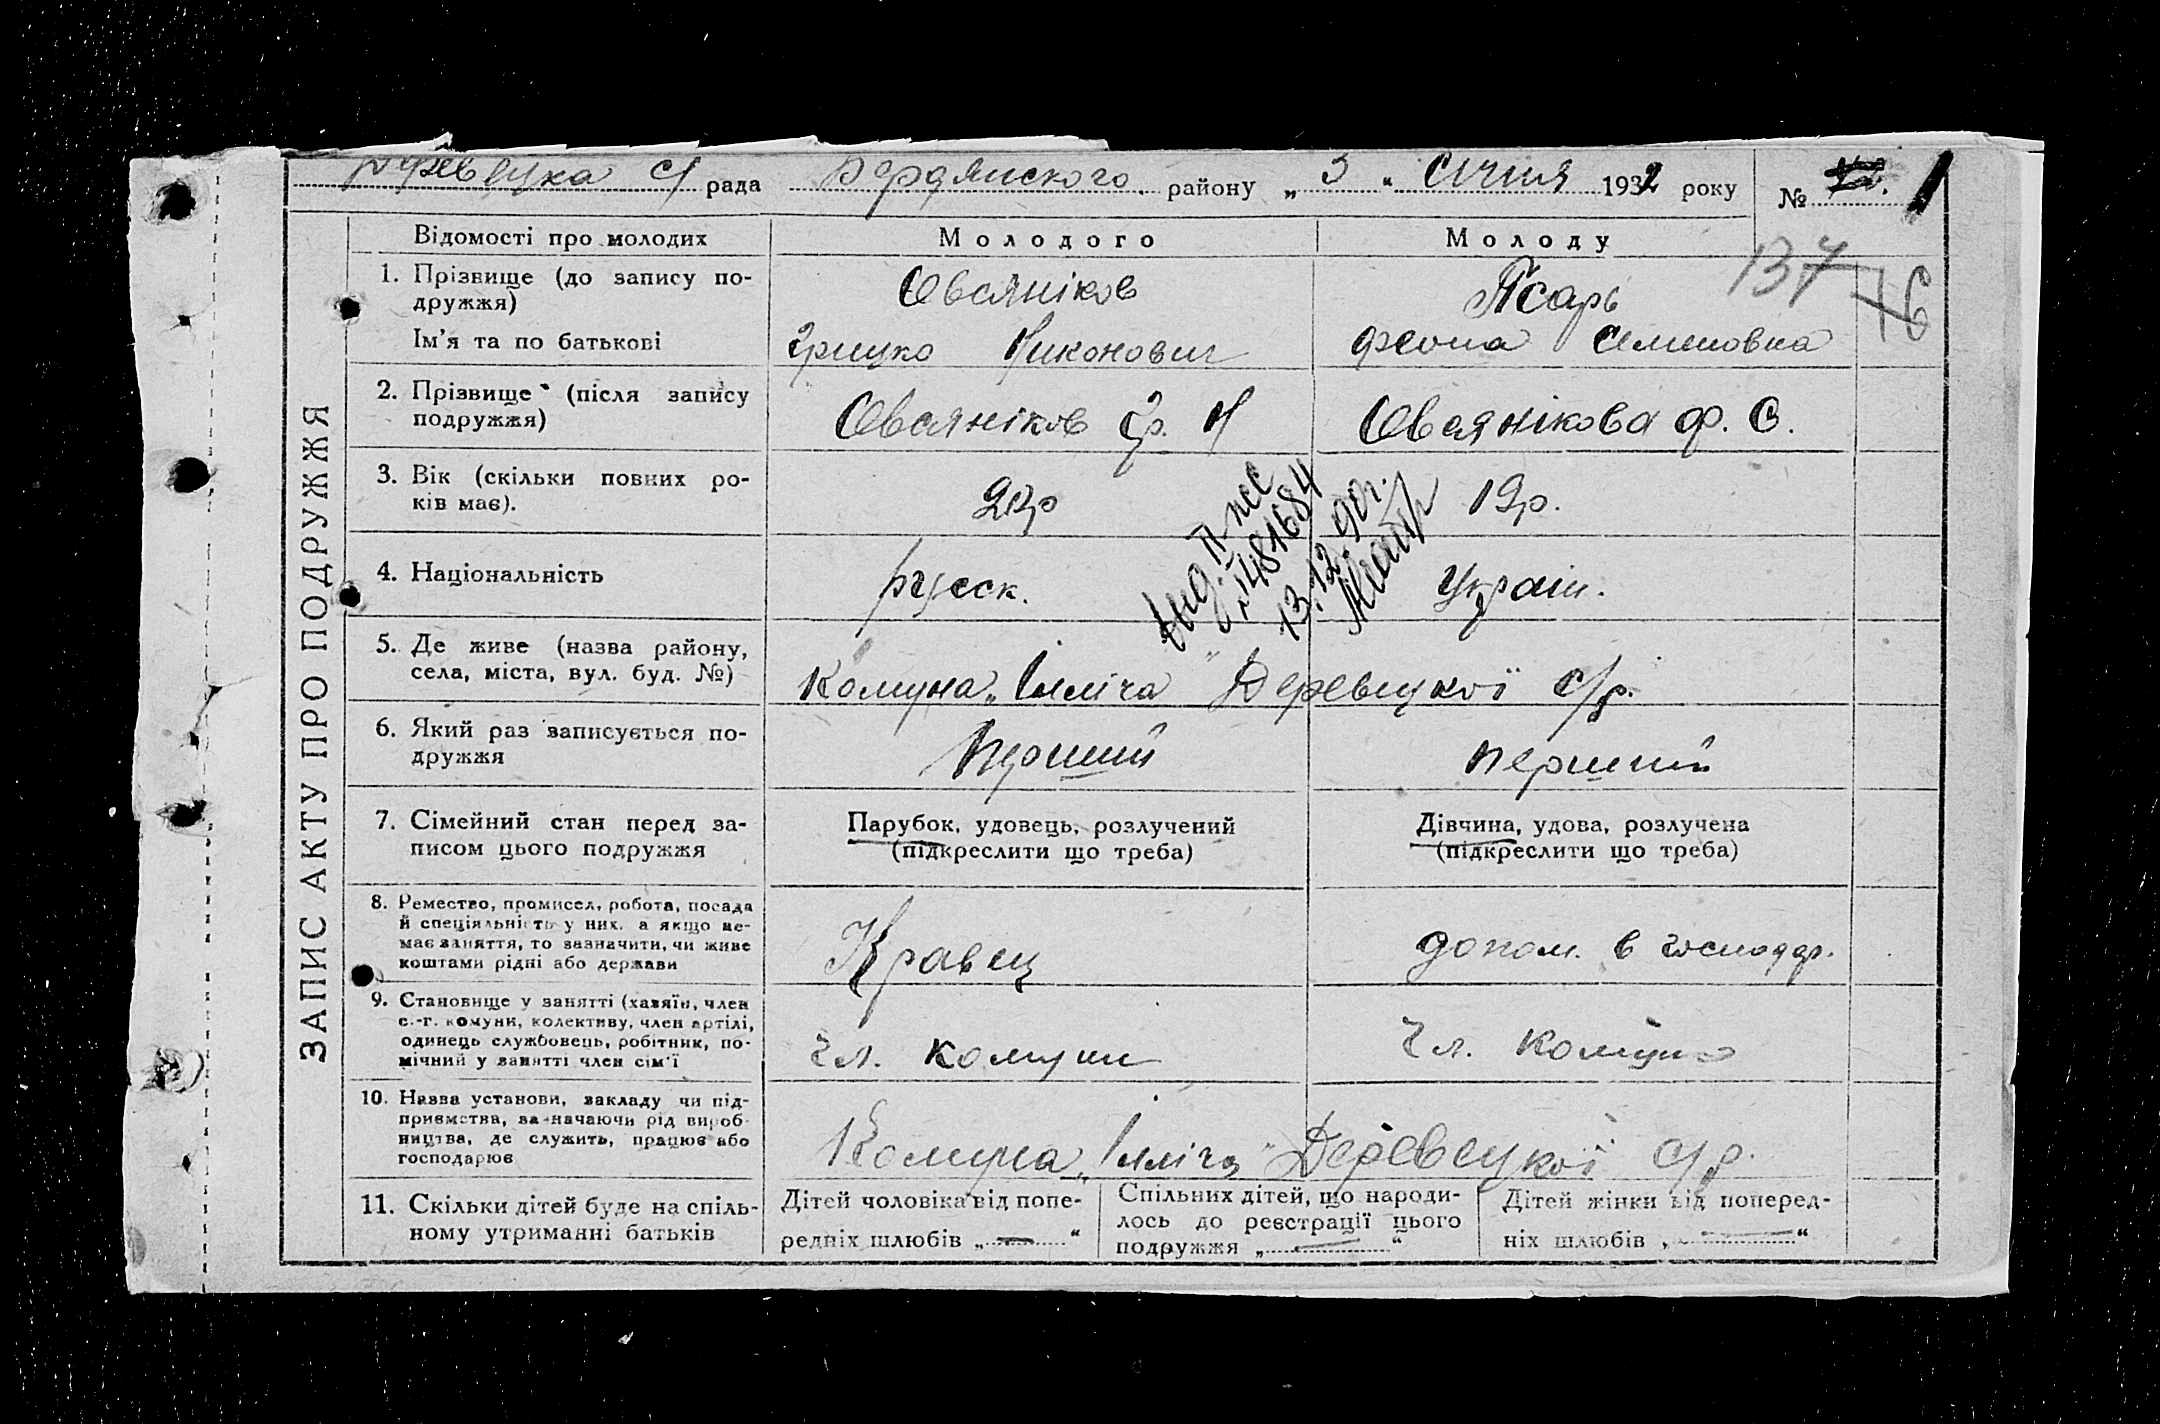 Деревецка с/ рада Бердянского району „ 3 " Січня 1932 року № 1
137 16
ЗАПИС АКТУ ПРО ПОДРУЖЖЯ
Відомості про молодих Молодого Молоду
1. Прізвище (до запису по-
дружжя) Овсяніков Псарь
Ім'я та по батькові Грицко Никонович Феона Семеновна
2. Прізвище (після запису
подружжя) Овсяніков Гр. Н Овсянікова Ф. С.
3. Вік (скільки повних ро-
ків має). 19р.
4. Національність русск. Україн.
выд. II
1481684
13.12.90г.
5. Де живе (назва району,
села, міста, вул. буд. №) Комуна „Ілліча" Деревецкої с/р.
6. Який раз записується по-
дружжя Перший перший
7. Сімейний стан перед за-
писом цього подружжя
Парубок, удовець, розлучений
(підкреслити що треба)
Дівчина, удова, розлучена
(підкреслити що треба)
8. Ремество, промисел, робота, посада
й спеціяльність у них, а якщо не-
має заняття, то зазначити, чи живе
коштами рідні або держави
Кравец допом. в господар.
9. Становище у занятті (хазяїн, член
с.-г. комуни, колективу, член артілі,
одинець службовець, робітник, по-
мічний у занятті член сім'ї
Чл. комуни Чл. комуни
10. Назва установи, закладу чи під-
приємства, зазначаючи рід вироб-
ництва, де служить, працює або
господарює
Комуна „Ілліча" Деревецкої с/р.
11. Скільки дітей буде на спіль-
ному утриманні батьків
Дітей чоловіка від попе-
редніх шлюбів „ — "
Спільних дітей, що народи-
лось до реєстрації цього
подружжя „ — "
Дітей жінки від поперед-
ніх шлюбів „ — "